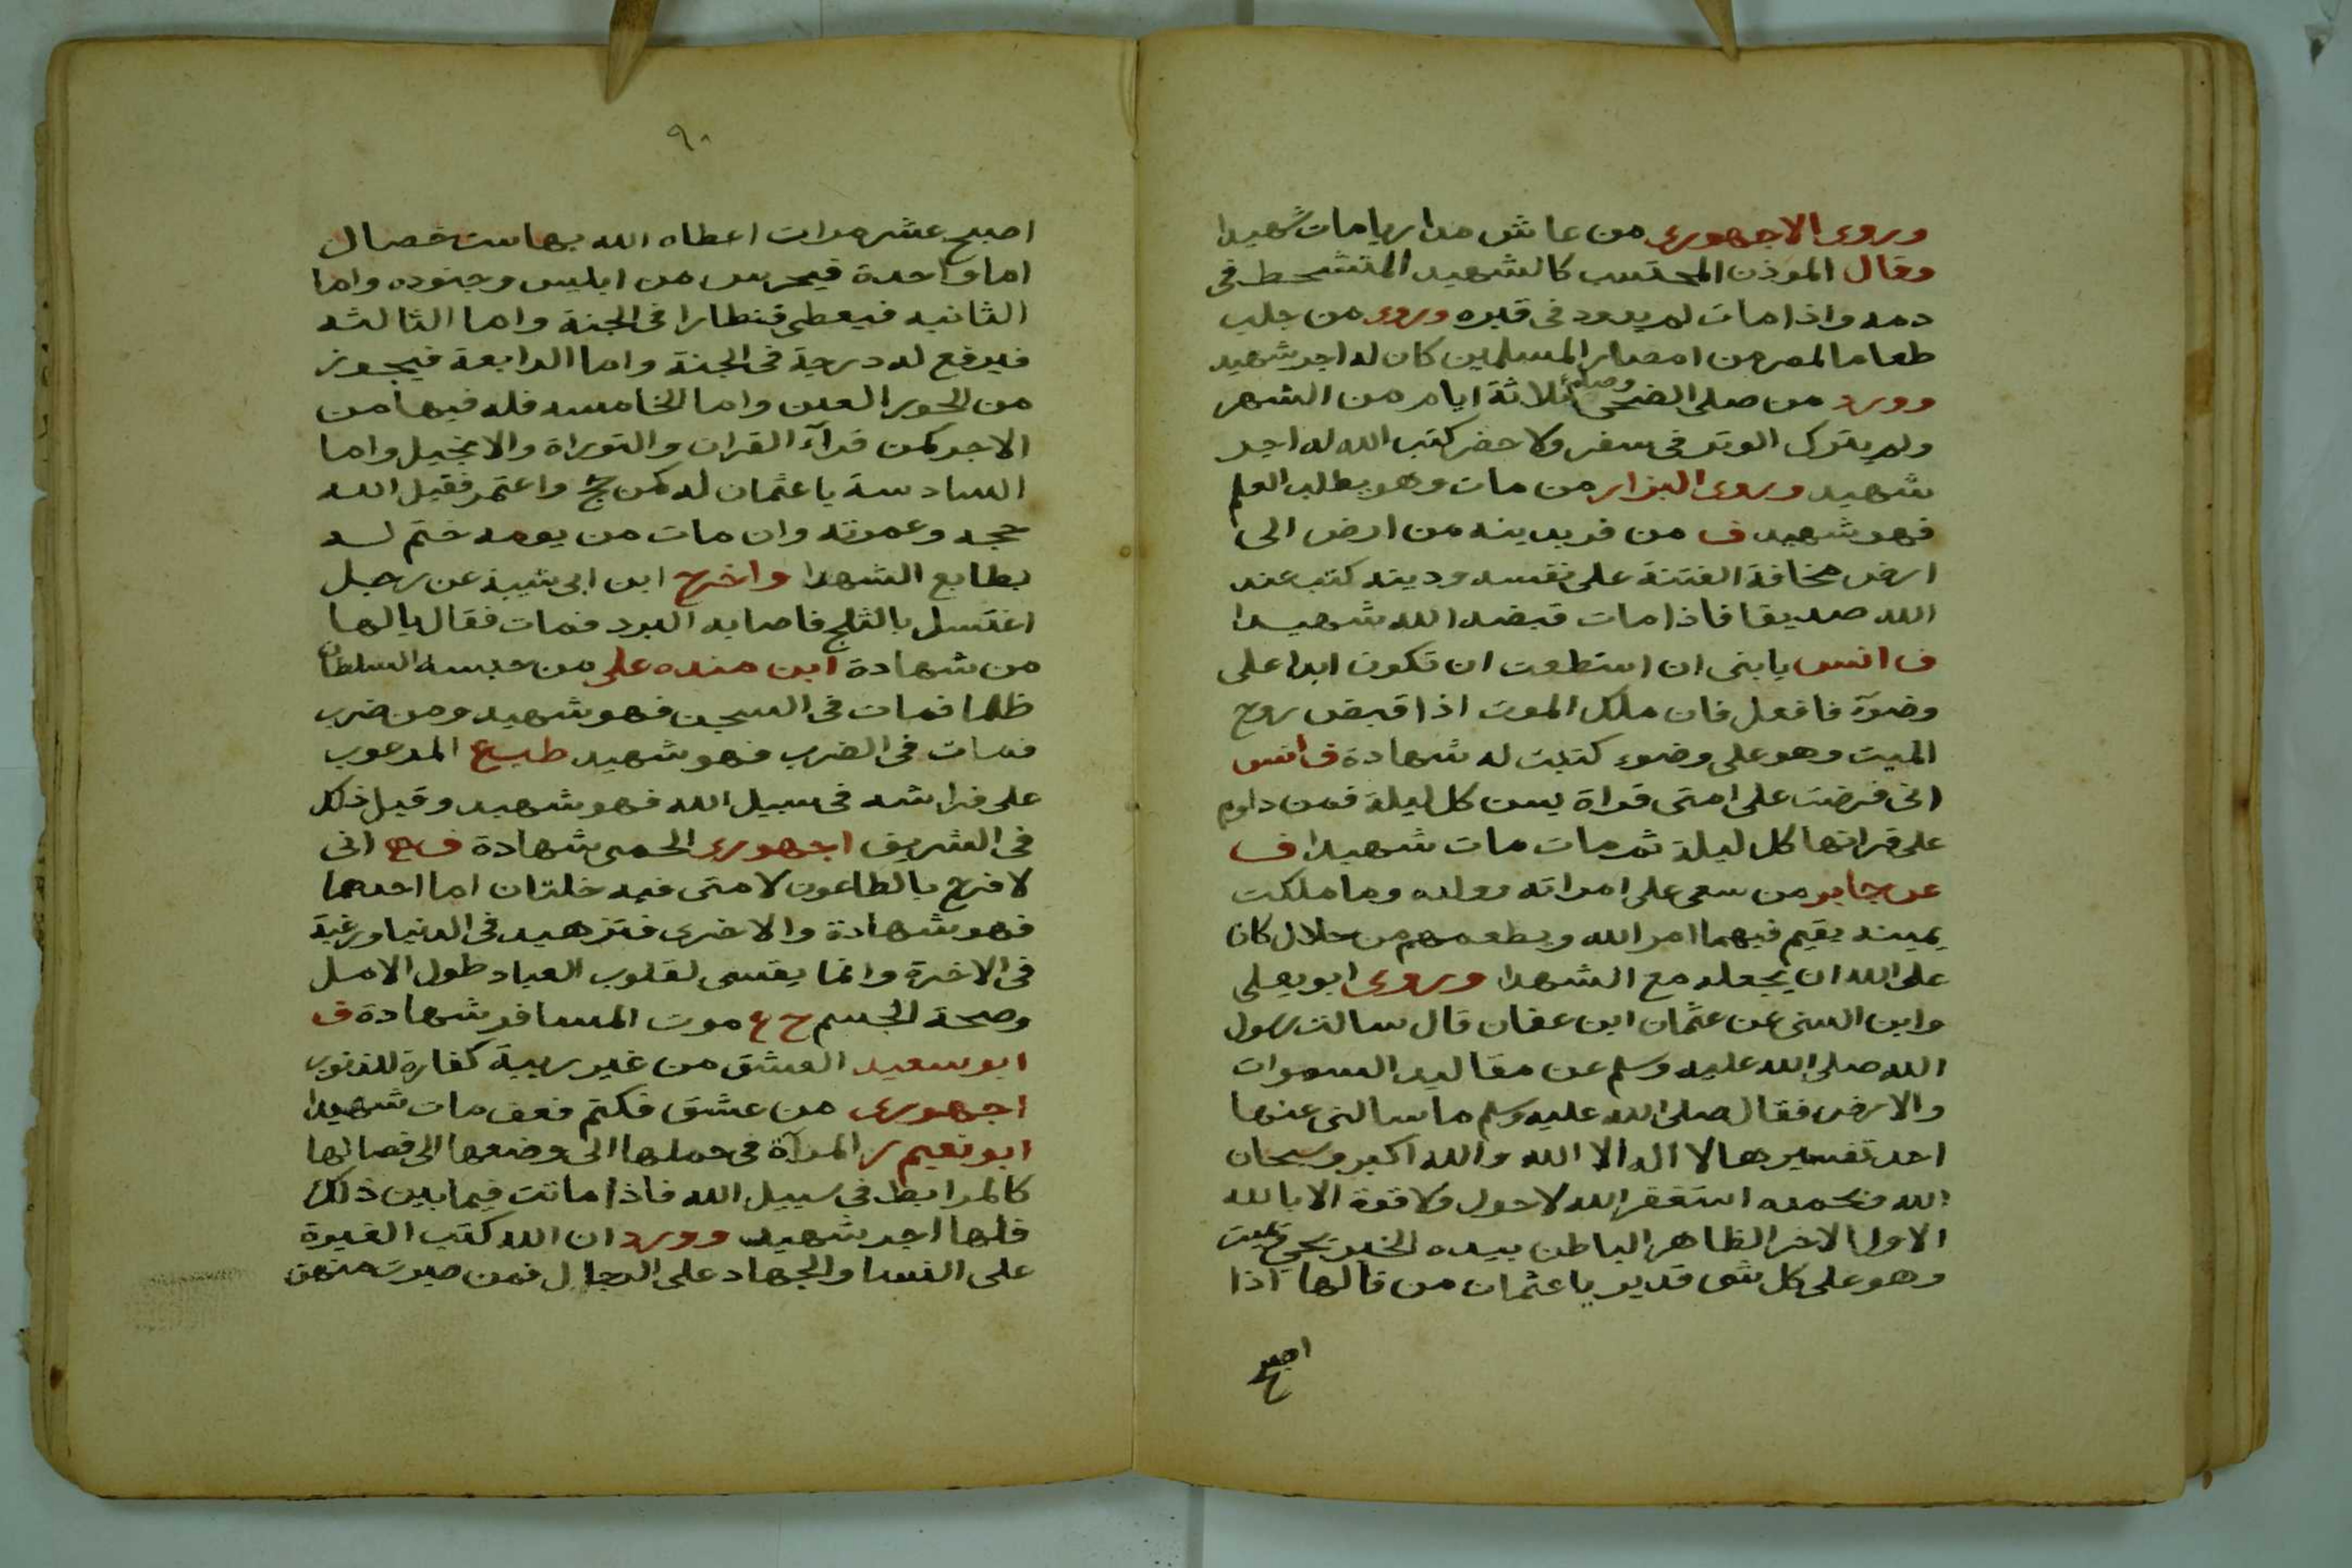 وروى الاجهورى من عاش مداريا مات شهيدا
وقال الموذن المحتسب كالشهيد المتشحط فى
دمه واذا مات لم يدود فى قبره وروى من جلب
طعاما لمصر من امصار المسلمين كان له اجر شهيد
وورد من صلى الضحى وصام ثلاثة ايام من الشهر
ولم يترك الوتر فى سفر ولا حضر كتب الله له اجر
شهيد وروى البزار من مات وهو يطلب العلم
فهو شهيد ف من فر بدينه من ارض الى
ارض مخافة الفتنة على نفسه ودينه كتب عند
الله صديقا فاذا مات قبضه الله شهيدا
ف انس يا بنى ان استطعت ان تكون ابدا على
وضوء فافعل فان ملك الموت اذا قبض روح
الميت وهو على وضوء كتبت له شهادة ف انس
انى فرضت على امتى قراة يس كل ليلة فمن داوم
على قراتها كل ليلة ثم مات مات شهيدا ف
عن جابر من سعى على امراته وولده وما ملكت
يمينه يقيم فيهما امر الله ويطعمهم من حلال كان
على الله ان يجعله مع الشهدا وروى ابو يعلى
وابن السنى عن عثمان ابن عفان قال سالت رسول
الله صلى الله عليه وسلم عن مقاليد السموات
والارض فقال صلى الله عليه وسلم ما سالنى عنها
احد تفسيرها لا اله الا الله والله اكبر وسبحان
الله وبحمده استغفر الله لا حول ولا قوة الا بالله
الاول الاخر الظاهر الباطن بيده الخير يحيى ويميت
وهو على كل شى قدير يا عثمان من قالها اذا
اصبح
٩٠
اصبح عشر مرات اعطاه الله بها ست خصال
اما واحدة فيحرس من ابليس وجنوده واما
الثانيه فيعطى قنطارا فى الجنة واما الثالثه
فيرفع له درجة فى الجنة واما الرابعة فيجوز
من الحور العين واما الخامسه فله فيها من
الاجر كمن قرآ القران والتوراة والانجيل واما
السادسة يا عثمان له كمن حج واعتمر فقبل الله
حجه وعمرته وان مات من يومه ختم له
بطابع الشهدا واخرج ابن ابى شيبة عن رجل
اغتسل بالثلج فاصابه البرد فمات فقال يالها
من شهادة ابن منده على من حبسه السلطان
ظلما فمات فى السجن فهو شهيد ومن ضرب
فمات فى الضرب فهو شهيد طب ع المرعوب
على فراشه فى سبيل الله فهو شهيد وقيل ذلك
فى الشريق اجهورى الحمى شهادة ف انى
لا فرح بالطاعون لامتى فيه خلتان اما احدهما
فهو شهادة والاخرى فتزهيد فى الدنيا ورغبة
فى الاخرة وانما يقسى لقلوب العباد طول الامل
وصحة الجسم ح ع موت المسافر شهادة ف
ابو سعيد العشق من غير ريبة كفارة للذنوب
اجهورى من عشق فكتم فعف مات شهيدا
ابو نعيم المرآة فى حملها الى وضعها الى فصالها
كالمرابط فى سبيل الله فاذا ماتت فيما بين ذلك
فلها اجر شهيد وورد ان الله كتب الغيرة
على النسا والجهاد على الرجال فمن صبرت منهن